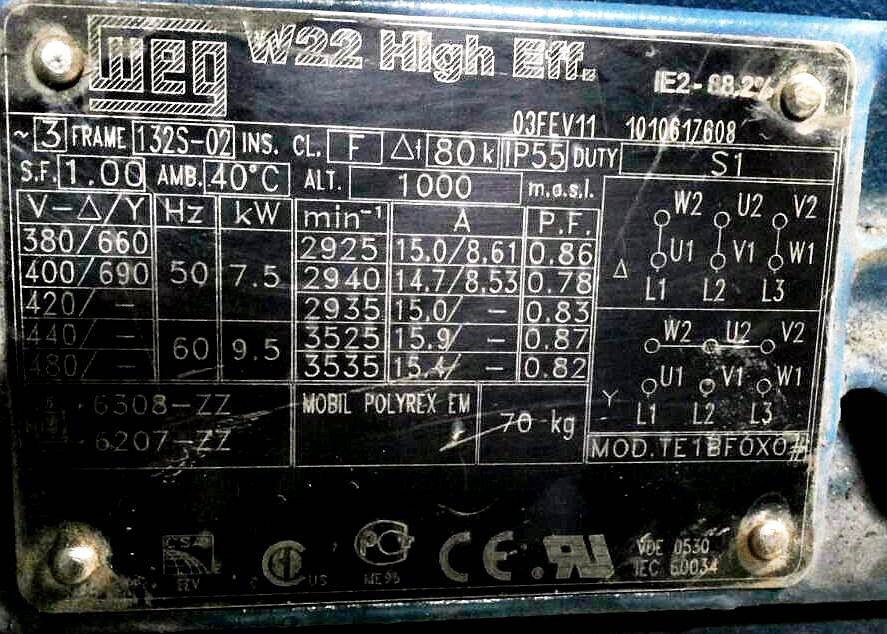 WEG W22 High Eff.
IE2-88.2%
03FEV11 1010617608
~ 3 FRAME 132S-02 INS. CL. F Δt 80 k IP55 DUTY S1
S.F. 1.00 AMB. 40°C ALT. 1000 m.a.s.l.
V-Δ/Y Hz kW min⁻¹ A P.F.
380/660 2925 15.0/8.61 0.86
400/690 50 7.5 2940 14.7/8.53 0.78
420/ - 2935 15.0/ - 0.83
440/ - 3525 15.9/ - 0.87
480/ - 60 9.5 3535 15.4/ - 0.82
W2 U2 V2
Δ U1 V1 W1
L1 L2 L3
W2 U2 V2
U1 V1 W1
Y L1 L2 L3
6308-ZZ MOBIL POLYREX EM
6207-ZZ 70 kg
MOD.TE1BF0X0#
EEV
US
ME95
CE
VDE 0530
IEC 60034